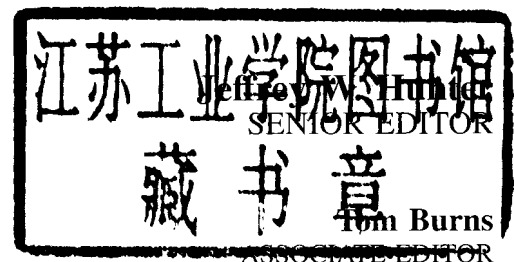 江苏工业学院图书馆
Jeffrey W. Hunter
SENIOR EDITOR
藏书章
Tom Burns
ASSOCIATE EDITOR